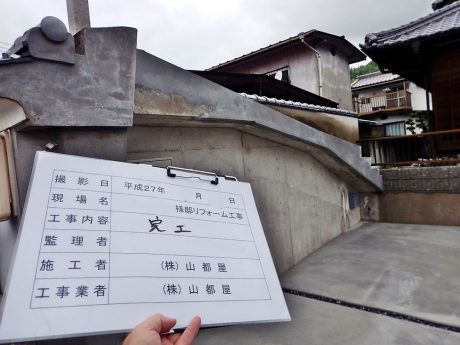 撮影日 平成27年 . 月 日
現場名 様邸リフォーム工事
工事内容 完工
監理者
施工者 (株)山都屋
工事業者 (株)山都屋